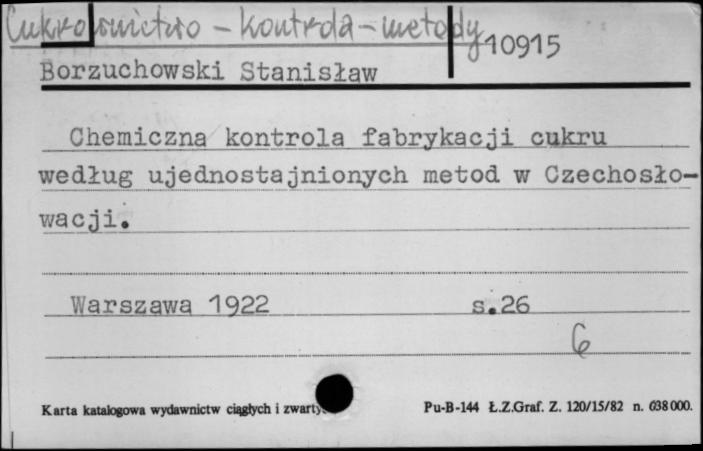 Cukrownictwo - kontrola - metody
10915
Borzuchowski Stanisław
Chemiczna kontrola fabrykacji cukru
według ujednostajnionych metod w Czechosło-
wacji.
Warszawa 1922 s.26
6
Karta katalogowa wydawnictw ciągłych i zwarty
Pu-B-144 Ł.Z.Graf. Z. 120/15/82 n. 638000.